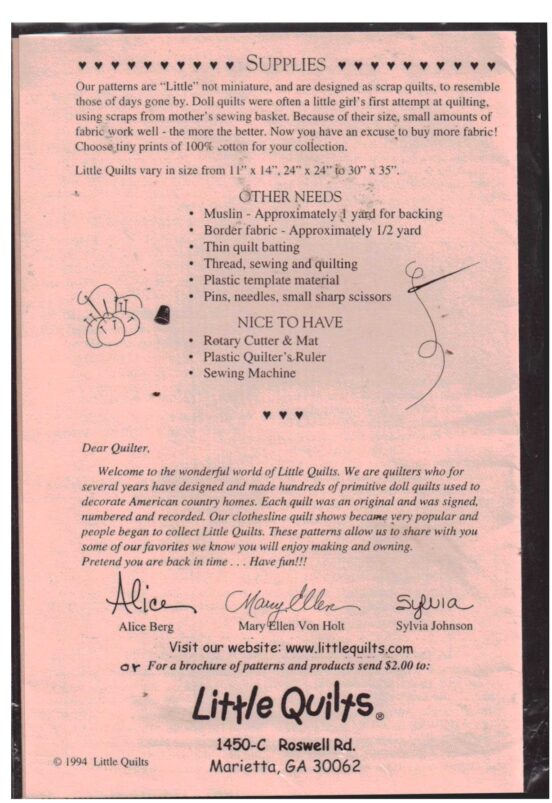 ♥ ♥ ♥ ♥ ♥ ♥ ♥ ♥ ♥ ♥ SUPPLIES ♥ ♥ ♥ ♥ ♥ ♥ ♥ ♥ ♥ ♥
Our patterns are “Little” not miniature, and are designed as scrap quilts, to resemble
those of days gone by. Doll quilts were often a little girl’s first attempt at quilting,
using scraps from mother’s sewing basket. Because of their size, small amounts of
fabric work well - the more the better. Now you have an excuse to buy more fabric!
Choose tiny prints of 100% cotton for your collection.
Little Quilts vary in size from 11” x 14”, 24” x 24” to 30” x 35”.
OTHER NEEDS
• Muslin - Approximately 1 yard for backing
• Border fabric - Approximately 1/2 yard
• Thin quilt batting
• Thread, sewing and quilting
• Plastic template material
• Pins, needles, small sharp scissors
NICE TO HAVE
• Rotary Cutter & Mat
• Plastic Quilter’s Ruler
• Sewing Machine
♥ ♥ ♥
Dear Quilter,
Welcome to the wonderful world of Little Quilts. We are quilters who for
several years have designed and made hundreds of primitive doll quilts used to
decorate American country homes. Each quilt was an original and was signed,
numbered and recorded. Our clothesline quilt shows became very popular and
people began to collect Little Quilts. These patterns allow us to share with you
some of our favorites we know you will enjoy making and owning.
Pretend you are back in time . . . Have fun!!!
Alice Mary Ellen Sylvia
Alice Berg Mary Ellen Von Holt Sylvia Johnson
Visit our website: www.littlequilts.com
or For a brochure of patterns and products send $2.00 to:
Little Quilts®
1450-C Roswell Rd.
Marietta, GA 30062
© 1994 Little Quilts